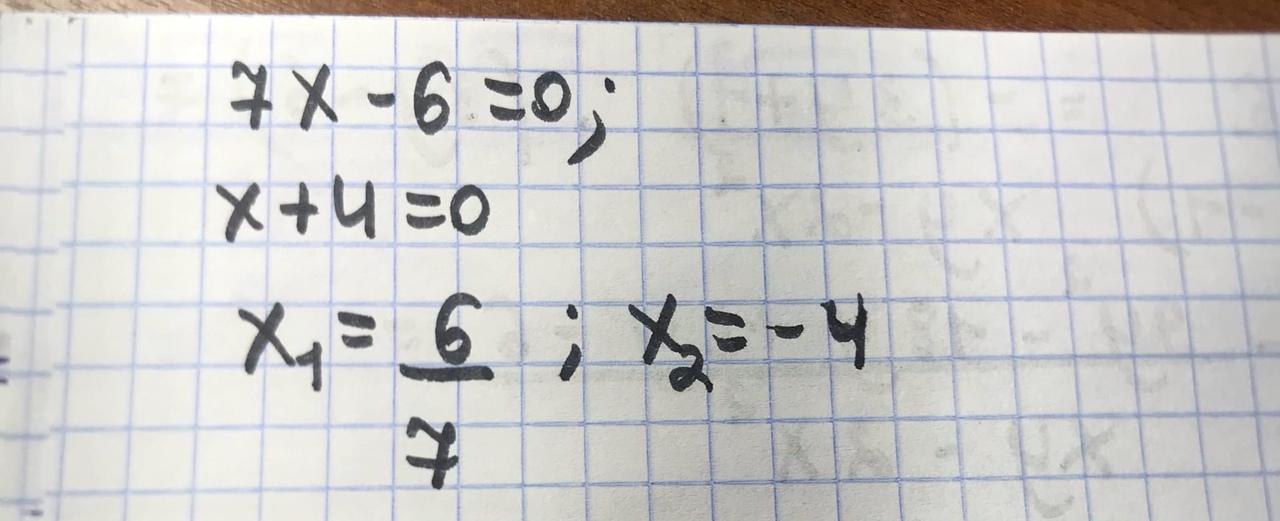 7x - 6 = 0;
x + 4 = 0
x₁ = 6/7 ; x₂ = - 4